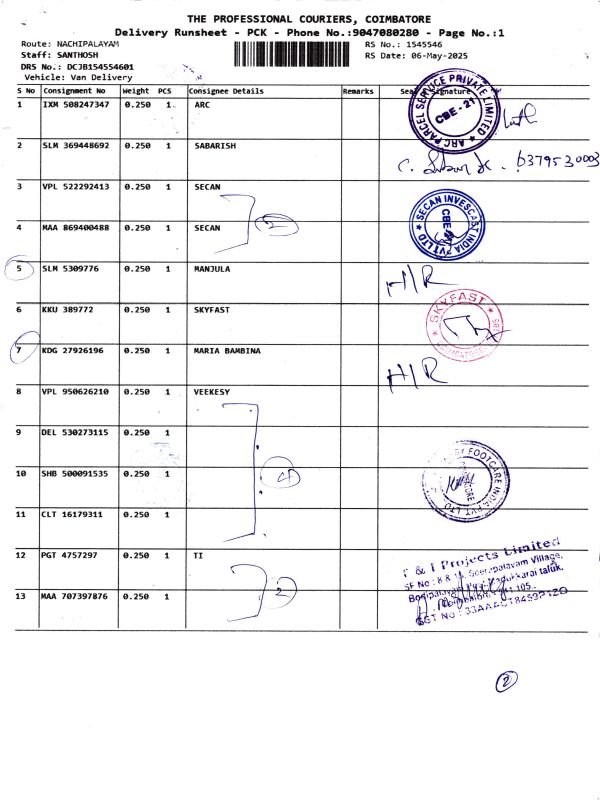 THE PROFESSIONAL COURIERS, COIMBATORE
Delivery Runsheet - PCK - Phone No.:9047080280 - Page No.:1
Route: NACHIPALAYAM
RS No.: 1545546
Staff: SANTHOSH
RS Date: 06-May-2025
DRS No.: DCJB154554601
Vehicle: Van Delivery
S No Consignment No Weight PCS Consignee Details Remarks Seal Signature
1 IXM 508247347 0.250 1 ARC
ARC PARCEL SERVICE PRIVATE LIMITED ★ CBE - 21
2 SLM 369448692 0.250 1 SABARISH
3 VPL 522292413 0.250 1 SECAN
2
SECAN INVESCAST INDIA PVT LTD ★ CBE
4 MAA 869400488 0.250 1 SECAN
5 SLM 5309776 0.250 1 MANJULA
H/R
6 KKU 389772 0.250 1 SKYFAST
★ SKYFAST ★
7 KDG 27926196 0.250 1 MARIA BAMBINA
H/R
8 VPL 950626210 0.250 1 VEEKESY
9 DEL 530273115 0.250 1
4
FOOTCARE INDIA PVT LTD
10 SHB 500091535 0.250 1
11 CLT 16179311 0.250 1
12 PGT 4757297 0.250 1 TI
2
Projects Limited
Village,
taluk,
13 MAA 707397876 0.250 1
2